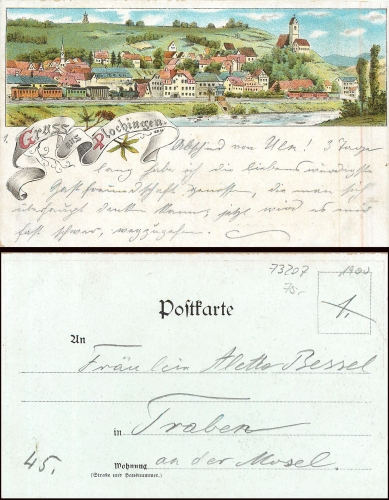 Gruss aus Plochingen.
1.
Abschied von Ulm! 3 Tage
lang habe ich die liebenswürdigste
Gastfreundschaft genossen, die man sich
überhaupt denken kann; jetzt wird es mir
fast schwer, wegzugehen.
73207 1900
75,-
Postkarte
1.
An
Fräulein Aletta Bessel
in Traben
45.
Wohnung an der Mosel.
(Straße und Hausnummer.)